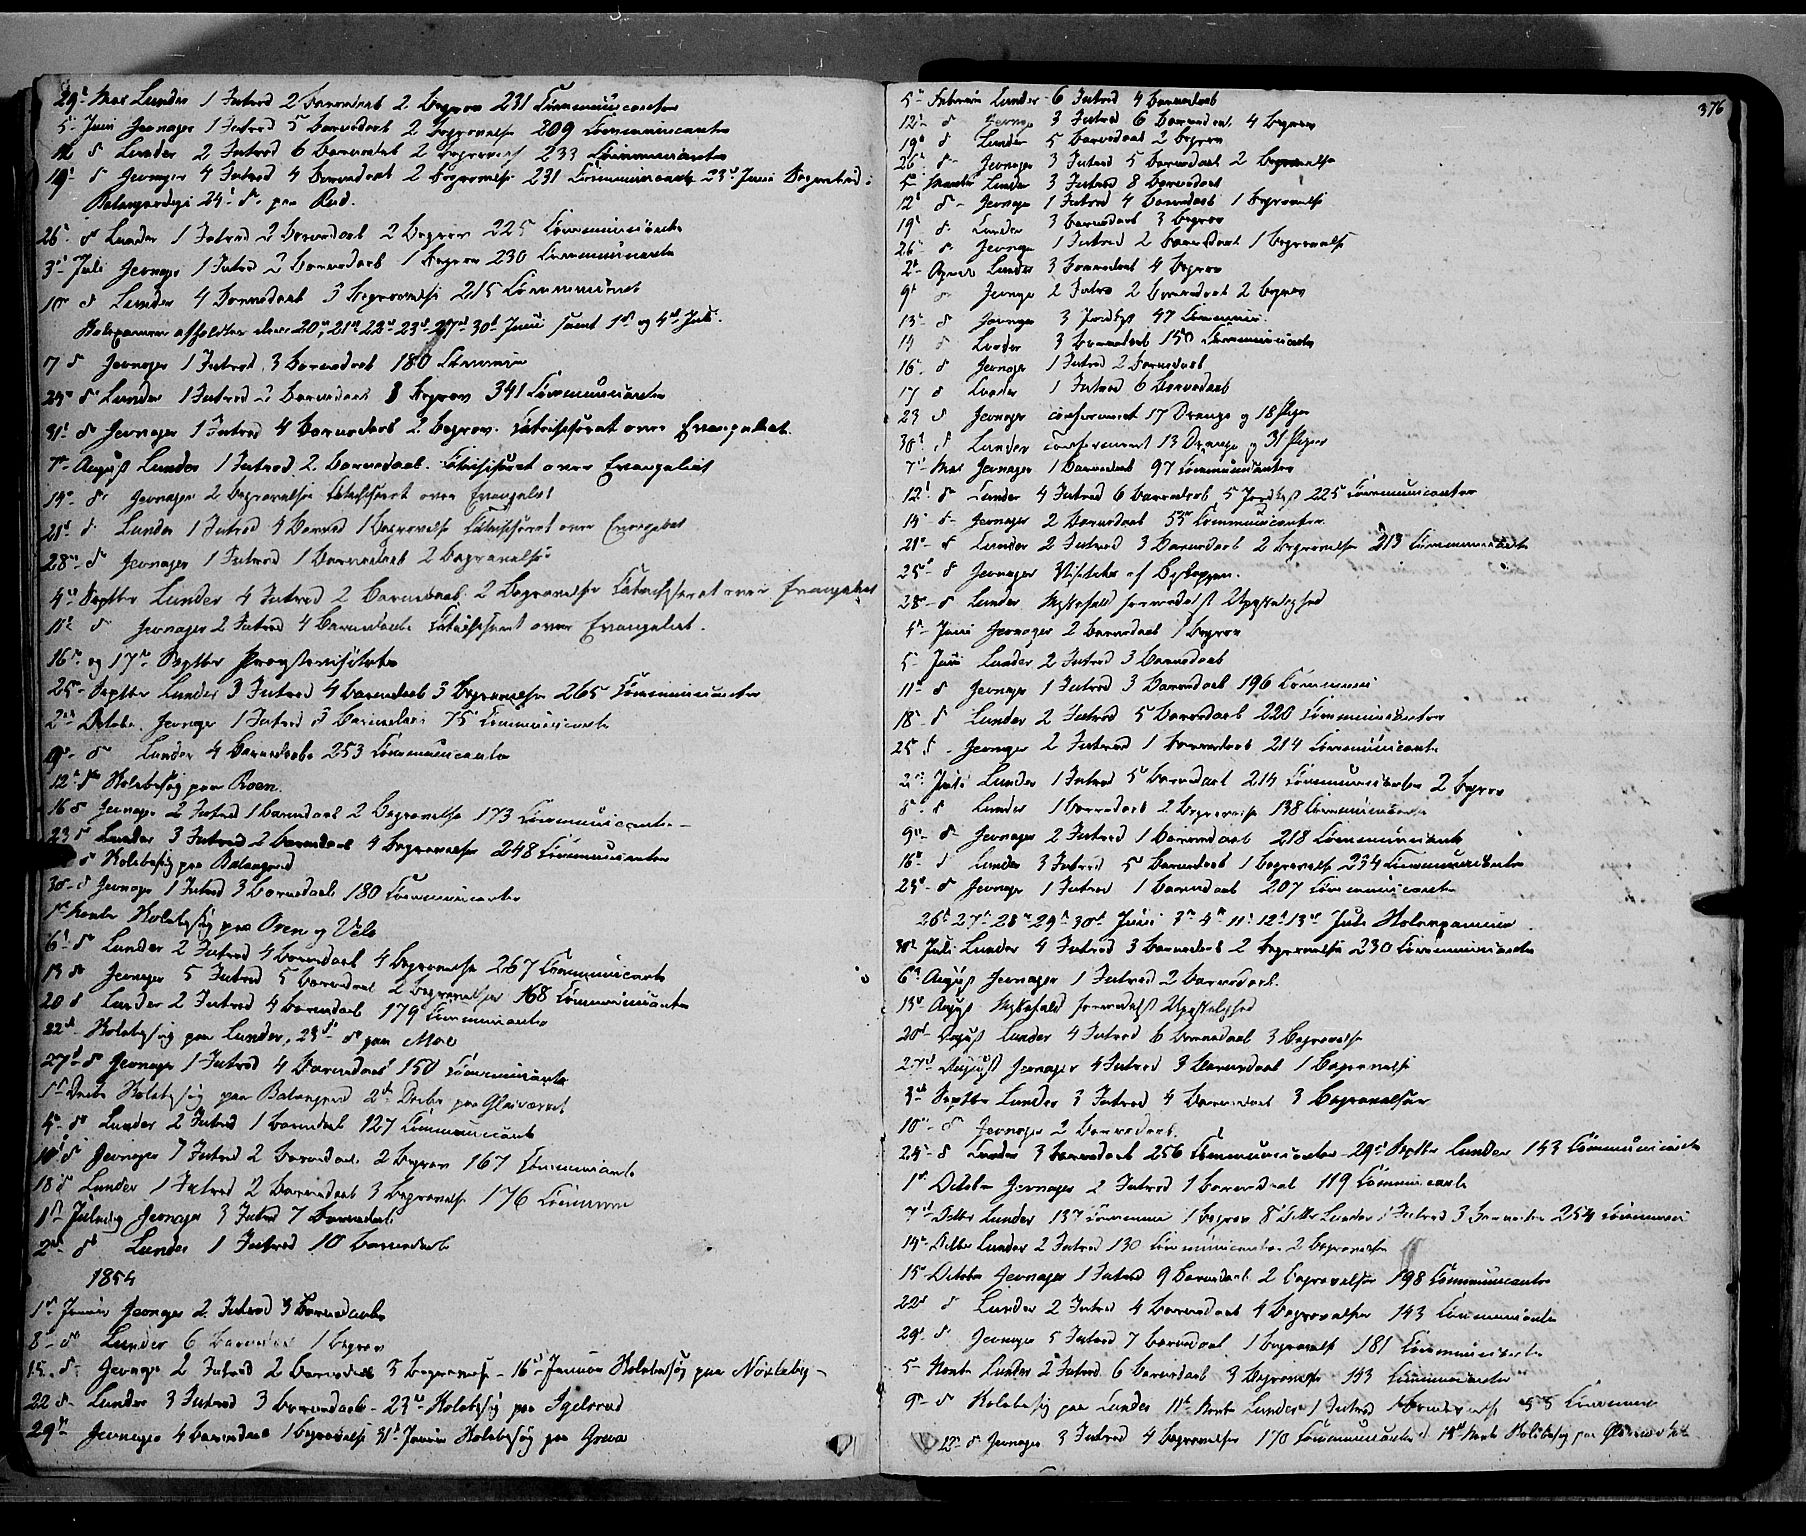 29de Mai Lunder 1 Introd 2 Barnedaab 2 Begrav 231 Communicanter
5te Juni Jevnager 1 Introd 5 Barnedaab 2 Begravelse 209 Communicanter
12 d Lunder 2 Introd 6 Barnedaab 2 Begravels 233 Communicanter
19de d Jevnager 4 Introd 4 Barnedaab 2 Begravelse 231 Communicanter 23de Juni
24de d paa Rud.
26 d Lunder 1 Introd 2 Barnedaab 2 Begrav 225 Communicanter
3die Juli Jevnager 1 Introd 2 Barnedaab 1 Begrav 230 Communicanter
10de d Lunder 4 Barnedaab 3 Begravelse 215 Communicant
afholdtes den 20de, 21de 22de 23de 27de 30te Juni samt 1ste og 4de Juli.
17 d Jevnager 1 Introd 3 Barnedaab 180 Commun
24de d Lunder 1 Introd 2 Barnedaab Begrav 341 Communicanter
31te d Jevnager 1 Introd 4 Barnedaab 2 Begrav. Catechiseret over Evangeliet.
7de August Lunder 1 Introd 2 Barnedaab. Catechiseret over Evangeliet
14de d Jevnager 2 Begravelse Catechiseret over Evangeliet
21de d Lunder 1 Introd 4 Barned 1 Begravelse Catechiseret over Evangeliet
28de d Jevnager 1 Introd 1 Barnedaab 2 Begravelse
4de Septbr Lunder 4 Introd 2 Barnedaab 2 Begravelser Catechiseret over Evangeliet
11te d Jevnager 2 Introd 4 Barnedaab Catechiseret over Evangeliet.
16de og 17de Septbr Provstevisitats
25de Septbr Lunder 3 Introd 4 Barnedaab 3 Begravelser 265 Communicanter
2den Octobr Jevnager 1 Introd 3 Barnedaab 75 Communicanter
9de d Lunder 4 Barnedaab 253 Communicanter
12te d Skolebesøg paa Roen.
16 d Jevnager 2 Introd 1 Barnedaab 2 Begravelse 173 Communicanter
23 d Lunder 3 Introd 2 Barnedaab 4 Begravelser 248 Communicanter
d Skolebesøg paa
30 d Jevnager 1 Introd 3 Barnedaab 180 Communicanter
1ste Novbr Skolebesøg paa Oren og Velo
6te d Lunder 2 Introd 4 Barnedaab 4 Begravelse 267 Communicanter
13 d Jevnager 5 Introd 5 Barnedaab 2 Begravelser 168 Communicanter
20 d Lunder 2 Introd 4 Barnedaab 179 Communicanter
22de Skolebesøg paa Lunder, 23de d paa Moe
27de d Jevnager 1 Introd 4 Barnedaab 150 Communicanter
1ste Decbr Skolebesøg paa 2den Decbr paa Glasværket
4de d Lunder 2 Introd 1 Barnedaab 127 Communicant
d Jevnager 7 Introd 2 Barnedaab 2 Begrav 167 Communicant
18 d Lunder 1 Introd 2 Barnedaab 3 Begravelse 176 Commun
1ste Juledag Jevnager 3 Introd 7 Barnedaab
2den d Lunder 1 Introd 10 Barnedaab
1854
1ste Januar Jevnager 2 Introd 3 Barnedaab
8de d Lunder 6 Barnedaab 1 Begrav
15 d Jevnager 2 Introd 2 Barnedaab 3 Begravelse - 16de Januar Skolebesøg paa
22 d Lunder 3 Introd 3 Barnedaab - 23de Skolebesøg paa Igelsrud
29de Jevnager 4 Barnedaab 1 Begravelse 31te Januar Skolebesøg paa
376
5te Februar Lunder 6 Introd 4 Barnedaab
12te d Jevnag 3 Introd 6 Barnedaab 4 Begrav
19de d Lunder 5 Barnedaab 2 Begrav
26de d Jevnager 3 Introd 5 Barnedaab 2 Begravelse
5te Martii Lunder 3 Introd 8 Barnedaab
12te d Jevnager 1 Introd 4 Barnedaab 1 Begravelse
19de d Lunder 3 Barnedaab 3 Begrav
26de d Jevnager 1 Introd 2 Barnedaab 1 Begravelse
2den April Lunder 3 Barnedaab 4 Begrav
9de Jevnager 2 Introd 2 Barnedaab 2 Begrav
13de d Jevnager 3 Jordkast 47 Commun.
14 d Lunder 3 Barnedaab 150 Communicanter
16de d Jevnager 1 Introd 2 Barnedaab
17 d Lunder 1 Introd 6 Barnedaab
23 d Jevnager confirmeret 17 Drenge og 18 Piger
30te d Lunder confirmeret 13 Drenge og 31 Piger
7de Mai Jevnager 1 Barnedaab 97 Communicanter
12te d Lunder 4 Introd 6 Barnedaab 5 Jordkast 225 Communicanter
14de d Jevnager 2 Barnedaab 55 Communicanter
21de d Lunder 2 Introd 3 Barnedaab 2 Begravelser 213 Communicanter
25de d Jevnager Visitats af Biskoppen.
28de d Lunder Messefald formedelst Upasselighed
4de Juni Jevnager 2 Barnedaab 1 Begrav
5 Juni Lunder 2 Introd 3 Barnedaab
11te d Jevnager 1 Introd 3 Barnedaab 196 Commun
18 d Lunder 2 Introd 5 Barnedaab 220 Communicanter
25 d Jevnager 2 Introd 1 Barnedaab 214 Communicanter
2den Juli Lunder 1 Introd 5 Barnedaab 214 Communicanter 2 Begrav
d Lunder 1 Barnedaab 2 Begravelse 138 Communicanter
9de d Jevnager 2 Introd 1 Barnedaab 218 Communicant
16de d Lunder 3 Introd 5 Barnedaab 1 Begravelse 234 Communicanter
23de d Jevnager 1 Introd 1 Barnedaab 207 Communicanter
26de 27de 28de 29de 30te Juni 3die 4de 11te 12te 13de Juli Skoleexamina
30te Juli Lunder 4 Introd 3 Barnedaab 2 Begravelse 230 Communicanter
6te August Jevnager 1 Introd 2 Barnedaab.
13de August Messefald formedelst Upasselighed
20de August Lunder 4 Introd 6 Barnedaab 3 Begravelse
27de August Jevnager 4 Introd 3 Barnedaab 1 Begravelse
3die Septbr Lunder 3 Introd 4 Barnedaab 3 Begravelser
10de d Jevnager 2 Barnedaab.
24de d Lunder 3 Barnedaab 256 Communicanter 29de Septbr Lunder 143 Communicanter
1ste Octobr Jevnager 2 Introd 1 Barnedaab 119 Communicanter
7de Octbr Lunder 137 Commun 1 Begrav 8de Octbr Lunder 1 Introd 3 Barnedaab 254 Commun
14de Octbr Lunder 2 Introd 130 Communicanter 2 Begravelser
15de Octobr Jevnager 1 Introd 9 Barnedaab 2 Begravelser 198 Communicanter
22de d Lunder 2 Introd 4 Barnedaab 4 Begravelser 143 Communicanter
29de d Jevnager 5 Introd 7 Barnedaab 1 Begravelse 181 Communicanter
5te Novbr Lunder 2 Introd 6 Barnedaab 3 Begravelser 143 Communicanter
9de d Skolebesøg paa Lunder 11te Novbr Lunder 1 Introd Commun
12te d Jevnager 3 Introd 4 Begravelser 170 Communicanter Novbr Skolebesøg paa